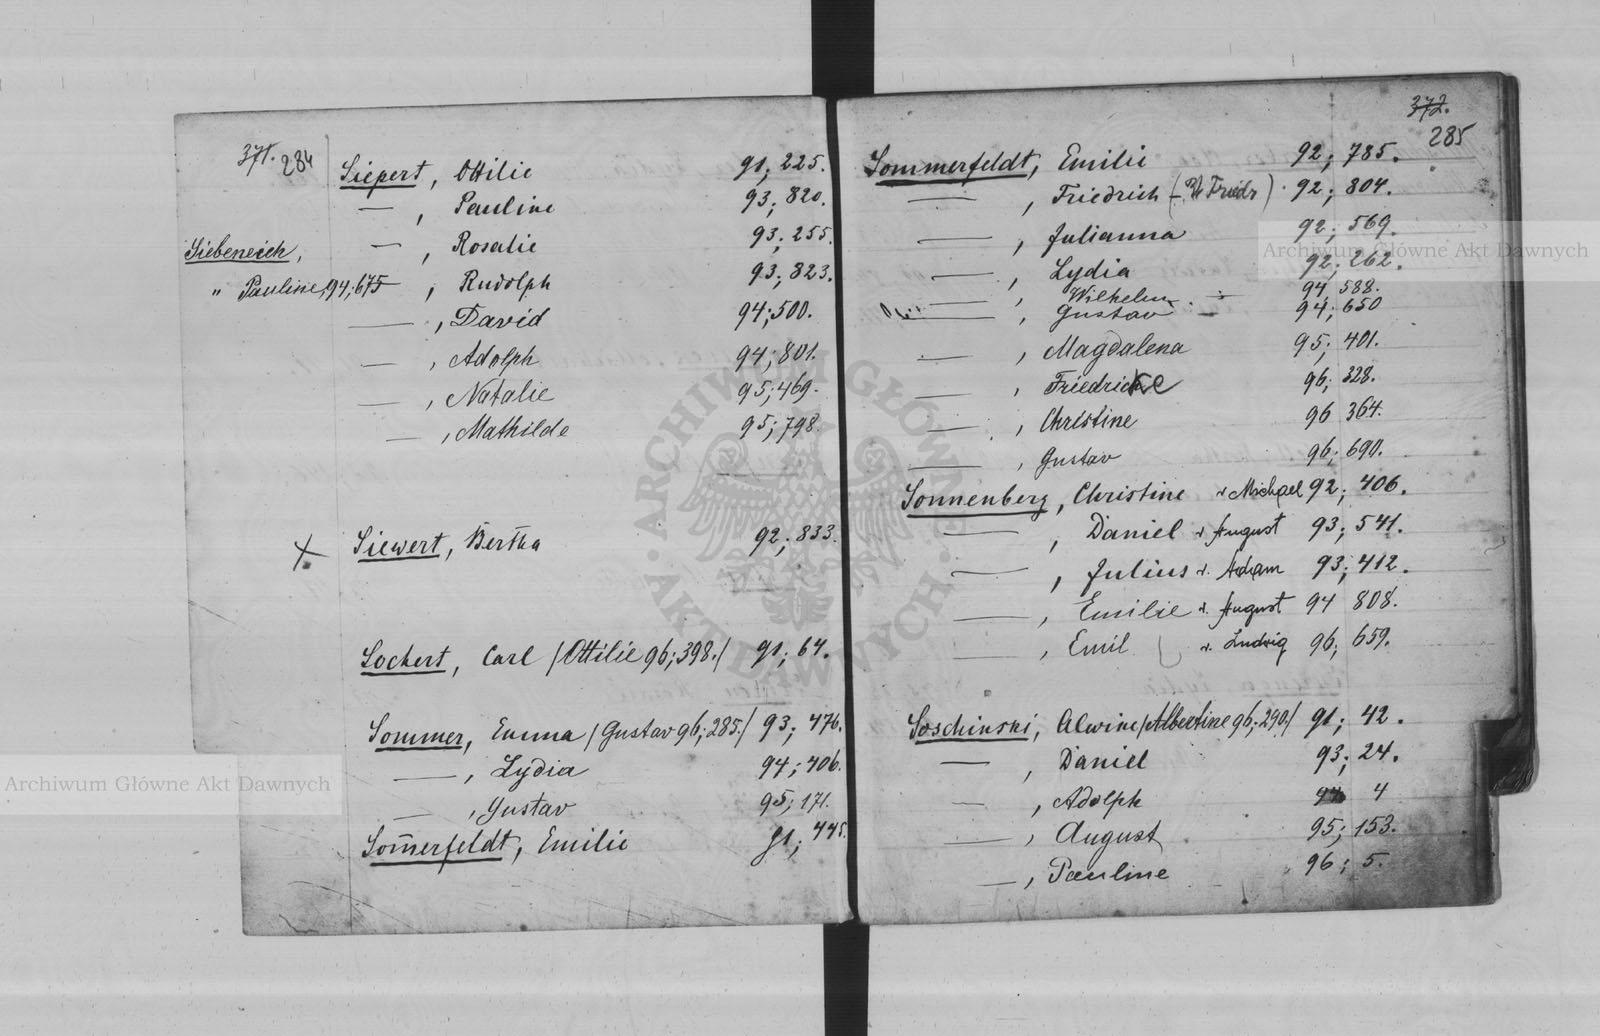 371. 284
Siepert, Ottilie 91; 225.
— , Pauline 93; 820.
— , Rosalie 93; 255.
Siebeneich,
" Pauline, 94; 675
— , Rudolph 93; 823.
— , David 94; 500.
— , Adolph 94; 801.
— , Natalie 95; 469.
— , Mathilde 95; 798.
Siewert, Bertha 92; 833.
Sockert, Carl /Ottilie 96; 398./ 91; 64.
Sommer, Emma /Gustav 96; 285./ 93; 476.
— , Lydia 94; 406.
— , Gustav 95; 171.
Som̄erfeldt, Emilie 91; 445.
372.
285
Sommerfeldt, Emilie 92; 785.
— , Friedrich 92; 804.
— , Julianna 92; 569.
— , Lydia 92; 262.
— , Wilhelm 94 588.
— , Gustav 94; 650
— , Magdalena 95; 401.
— , Friedricke 96; 328.
— , Christine 96 364.
— , Gustav 96; 690.
Sonnenberg, Christine v Michael 92; 406.
— , Daniel v August 93; 541.
— , Julius v. Adam 93; 412.
— , Emilie v. August 94 808.
— , Emil v. Ludwig 96; 659.
Soschinski, Alwine /Albertine 96; 290./ 91; 42.
— , Daniel 93; 24.
— , Adolph 94 4
— , August 95; 153.
— , Pauline 96; 5.
Archiwum Główne Akt Dawnych
Archiwum Główne Akt Dawnych
ARCHIWUM GŁÓWNE AKT DAWNYCH